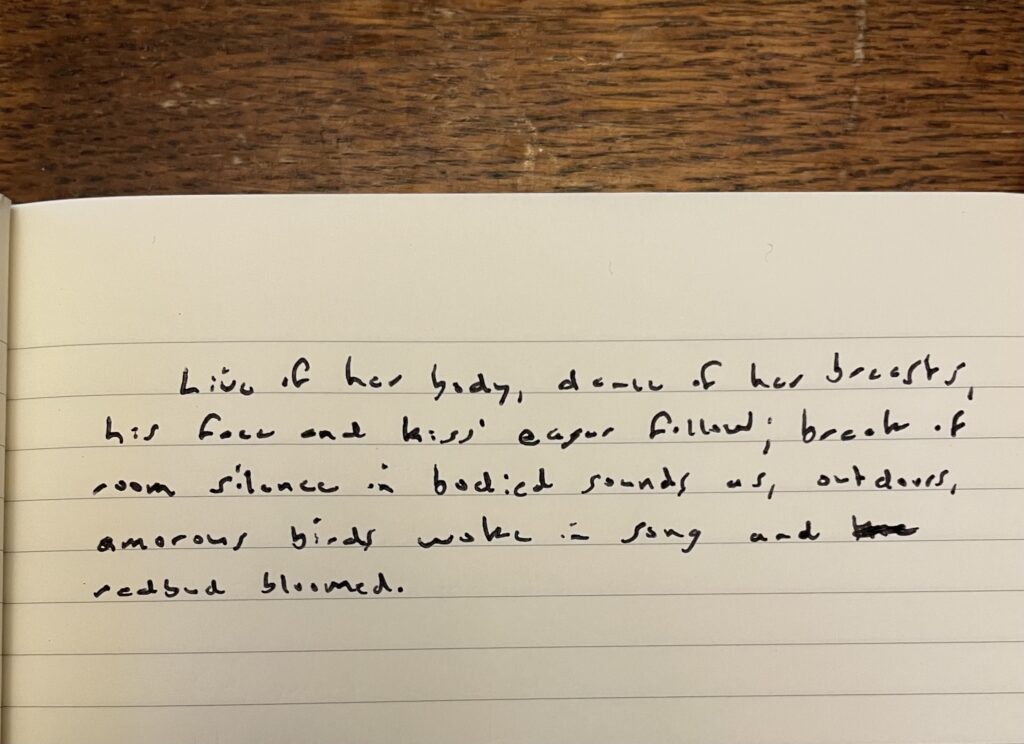 Live of her body, dance of her breasts,
his face and kiss' eager follow; break of
room silence in bodied sounds as, outdoors,
amorous birds woke in song and
redbud bloomed.